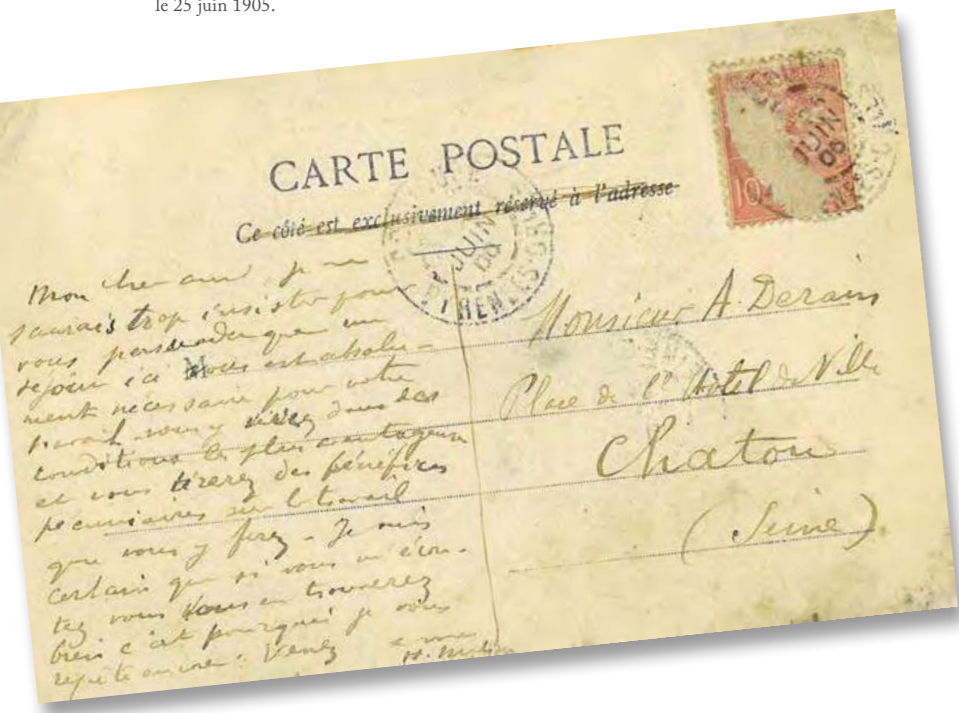 le 25 juin 1905.
CARTE POSTALE
Ce côté est exclusivement réservé à l'adresse
10
JUIN
05
JUIN
05
PYRENEES-OR
Mon cher ami je ne
saurais trop insister pour
vous persuader qu'un
séjour ici vous est absolu-
ment nécessaire pour votre
travail vous y serez dans des
conditions les plus avantageuses
et vous tirerez des bénéfices
pécuniaires sur le travail
que vous y ferez - Je suis
certain que si vous m'écou-
tez vous vous en trouverez
bien c'est pourquoi je vous
repète encore. Venez
H. Matisse
Monsieur A. Derain
Place de l'Hôtel de Ville
Chatou
(Seine)